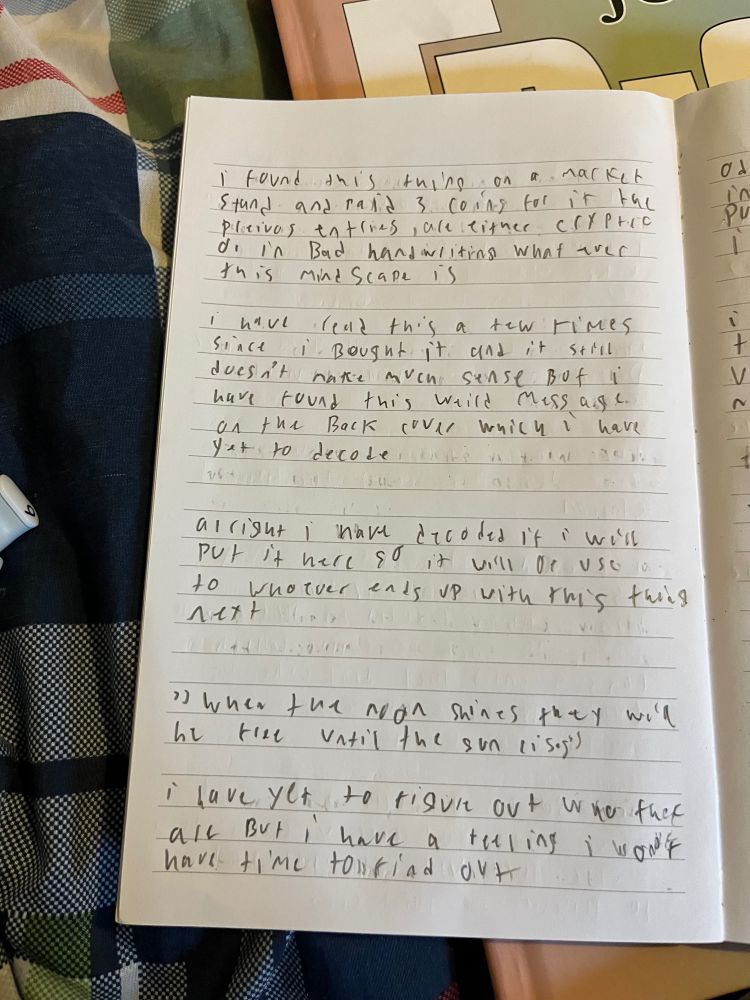 i found this thing on a market
stand and paid 3 coins for it the
previos entries are either cryptic
or in Bad handwriting what ever
this mindscape is
i have read this a few times
since i Bought it and it still
doesn't make much sense But i
have found this weird message
on the Back cover which i have
yet to decode
alright i have decoded it i will
put it here so it will be use
to whoever ends up with this thing
next
"when the moon shines they will
be free until the sun rises"
i have yet to figure out who they
are But i have a feeling i won't
have time to find out